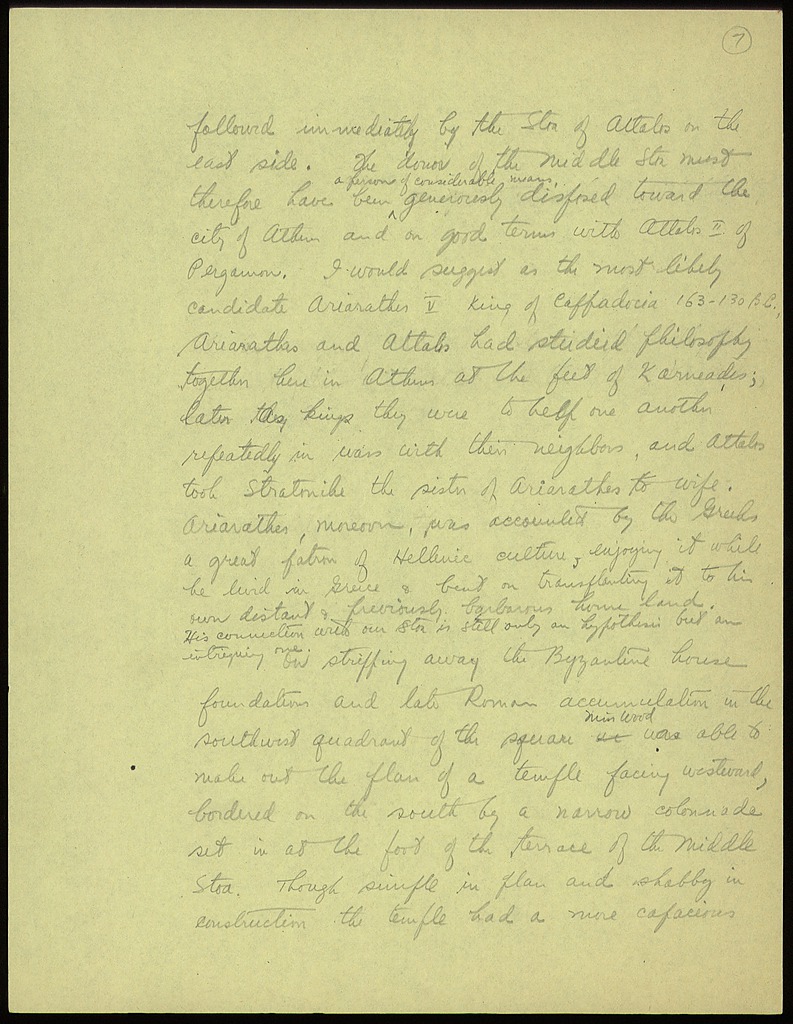 7
followed immediately by the Stoa of Attalos on the
east side. The donor of the Middle Stoa must
a person of considerable means,
therefore have been ^ generously disposed toward the
city of Athens and on good terms with Attalos II of
Pergamon. I would suggest as the most likely
candidate Ariarathes V King of Cappadocia 163-130 B.C.,
Ariarathes and Attalos had studied philosophy
together here in Athens at the feet of Karneades;
later as kings they were to help one another
repeatedly in wars with their neighbors, and Attalos
took Stratonike the sister of Ariarathes to wife.
Ariarathes, moreover, was accounted by the Greeks
a great patron of Hellenic culture, enjoying it while
he lived in Greece & bent on transplanting it to his
own distant & previously barbarous home land.
His connection with our Stoa is still only an hypothesis but an
intriguing one.
On stripping away the Byzantine house
foundations and late Roman accumulation in the
Miss Wood
southwest quadrant of the square we was able to
make out the plan of a temple facing westward,
bordered on the south by a narrow colonnade
set in at the foot of the terrace of the Middle
Stoa. Though simple in plan and shabby in
construction the temple had a more capacious